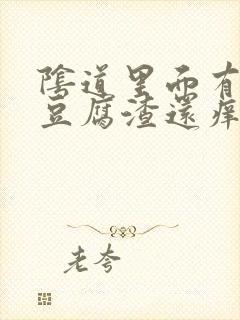 陰道里面有
豆腐渣還痒
老夸